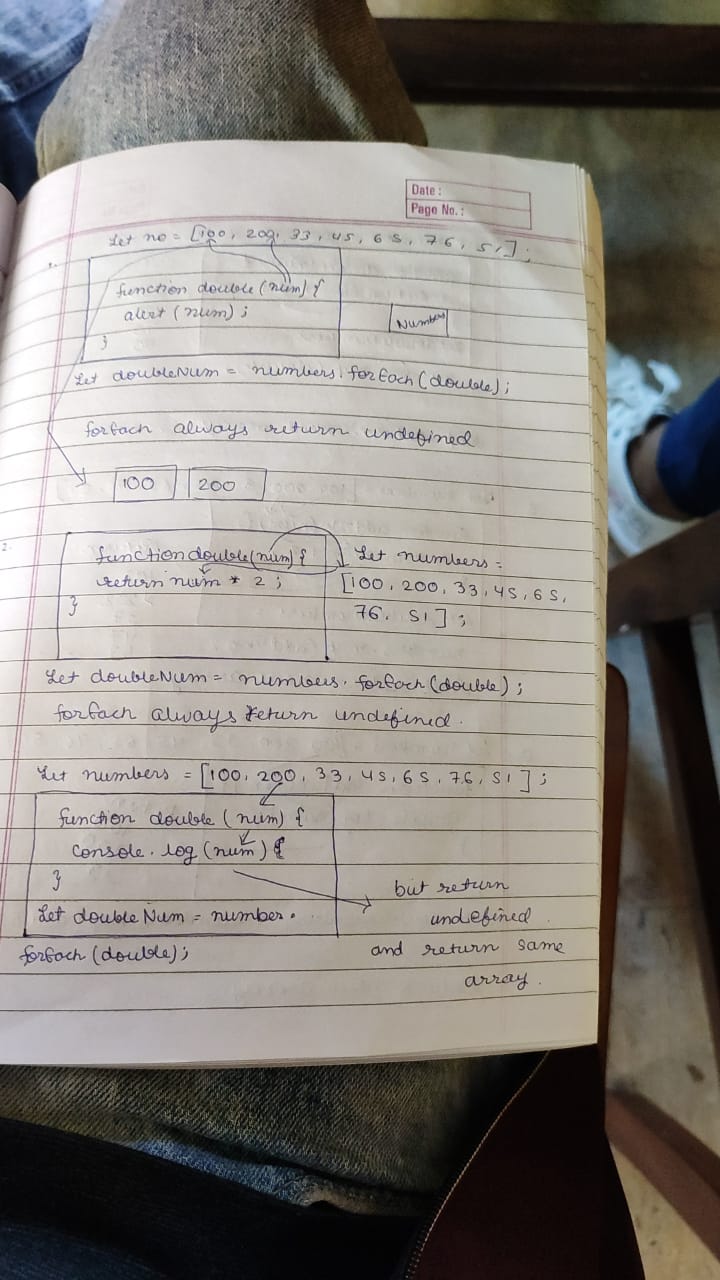 Date :
Page No. :
Let no = [100, 200, 33, 45, 65, 76, 51,] ;
1.
function double (num) {
alert (num) ;
}
Numbers
Let doubleNum = numbers. forEach (double) ;
forEach always return undefined
100 200
2.
function double (num) {
return num * 2 ;
}
Let numbers =
[100, 200, 33, 45, 65,
76, 51 ] ;
Let doubleNum = numbers. forEach (double) ;
forEach always return undefined.
Let numbers = [100, 200, 33, 45, 65, 76, 51 ] ;
function double (num) {
console. log (num) {
}
Let doubleNum = number.
forEach (double) ;
but return
undefined.
and return same
array.